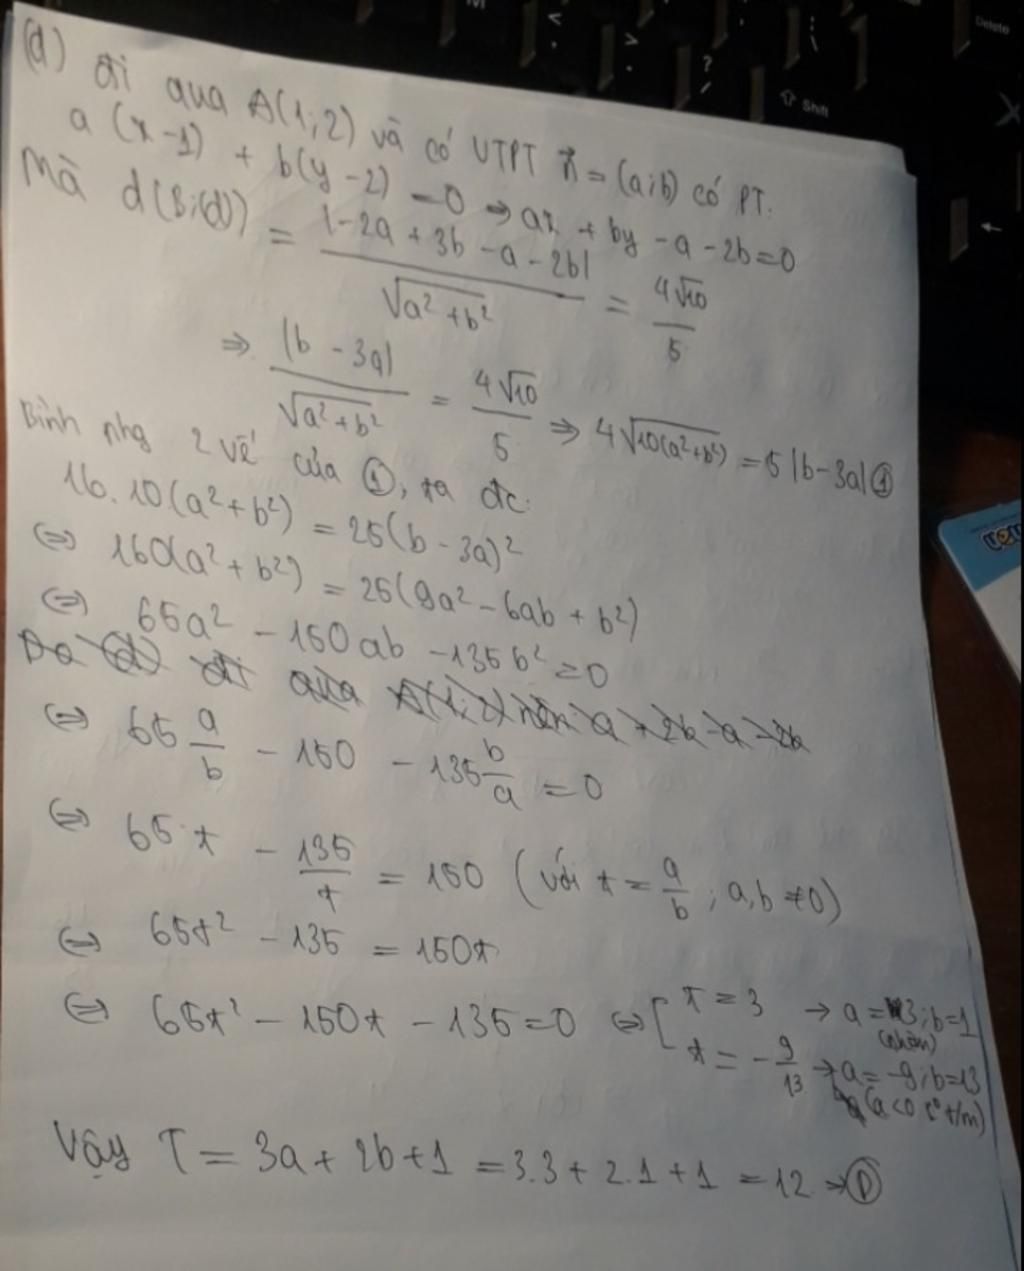 (d) đi qua A(1;2) và có VTPT n⃗ = (a;b) có PT:
a(x-1) + b(y-2) = 0 => ax + by - a - 2b = 0
Mà d(B;(d)) = |-2a + 3b - a - 2b| / √(a² + b²) = 4√10 / 5
=> |b - 3a| / √(a² + b²) = 4√10 / 5 => 4√10(a²+b²) = 5|b-3a| ①
Bình phg 2 vế của ①, ta đc:
16.10(a²+b²) = 25(b-3a)²
<=> 160(a²+b²) = 25(9a² - 6ab + b²)
<=> 65a² - 150ab - 135b² = 0
<=> 65 a/b - 150 - 135 b/a = 0
<=> 65t - 135/t = 150 (với t = a/b ; a,b ≠ 0)
<=> 65t² - 135 = 150t
<=> 65t² - 150t - 135 = 0 <=> [ t = 3 → a = 3; b = 1
(nhận)
t = -9/13 → a = -9; b = 13
(a<0 ko t/m)
Vậy T = 3a + 2b + 1 = 3.3 + 2.1 + 1 = 12 → Ⓓ
Delete
Shift
M
<
,
>
.
?
/